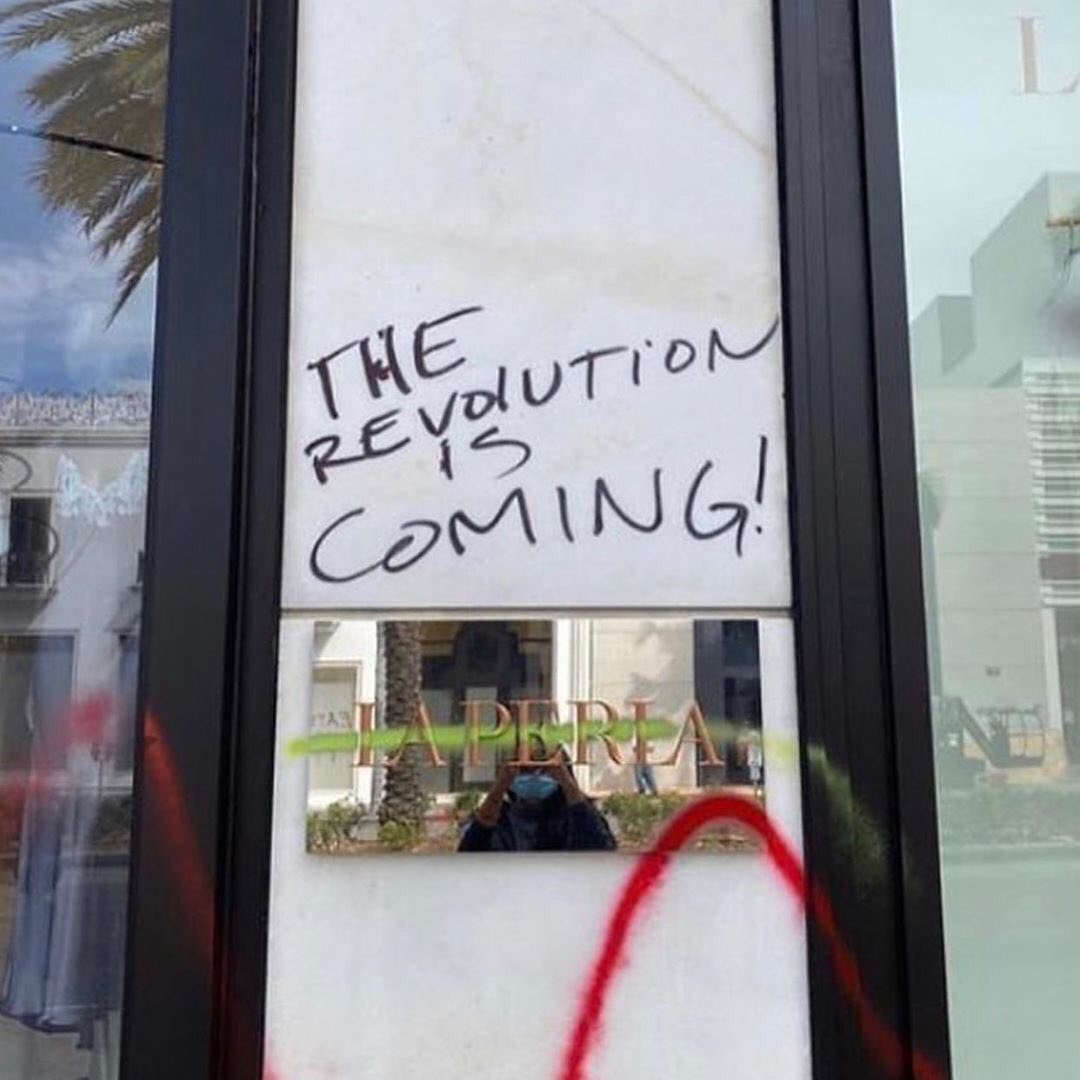 THE
REVOLUTION
IS
COMING!
LA PERLA
L